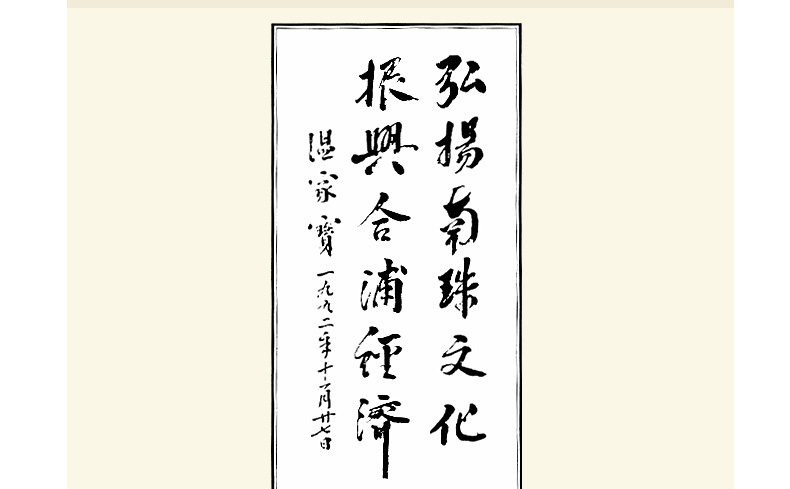 弘揚南珠文化
振興合浦經濟
温家寶 一九九二年十一月廿七日